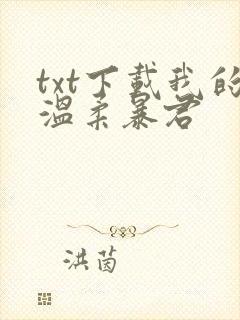 txt下载我的
温柔暴君
洪茵